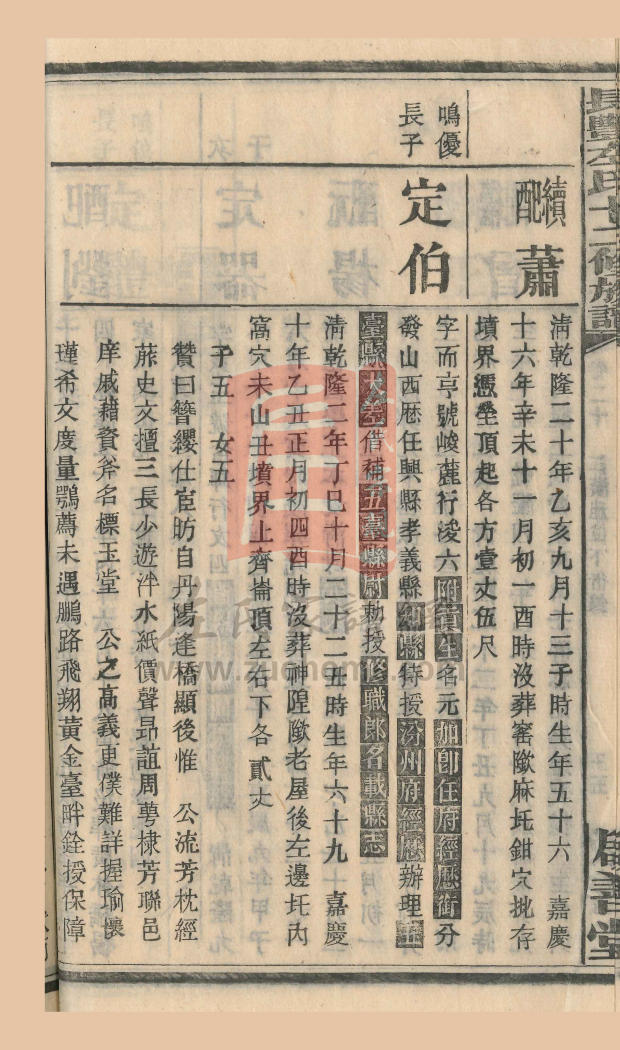 長豐左氏十二修族譜
續配
蕭
清乾隆二十年乙亥九月十三子時生年五十六 嘉慶
十六年辛未十一月初一酉時沒葬窰歇麻坵鉗穴批存
墳界憑坐頂起各方壹丈伍尺
鳴優
長子
定伯
字而亨號峻麓行浚六附貢生名元加卽任府經歷銜分
發山西歷任興縣孝義縣知縣待授汾州府經歷辦理五
臺縣大差借補五臺縣尉勅授修職郎名載縣志
清乾隆二年丁巳十月二十二丑時生年六十九 嘉慶
十年乙丑正月初四酉時沒葬神隍歇老屋後左邊坵內
窩穴未山丑墳界上齊崙頂左右下各貳丈
子五 女五
贊曰簪纓仕宦昉自丹陽逢橋顯後惟 公流芳枕經
葄史文擅三長少遊泮水紙價聲昂誼周蕚棣芳聯邑
庠戚藉資斧名標玉堂 公之高義更僕難詳握瑜懷
瑾希文度量鶚薦未遇鵬路飛翔黃金臺畔銓授保障
善堂
www.zuoneme.com